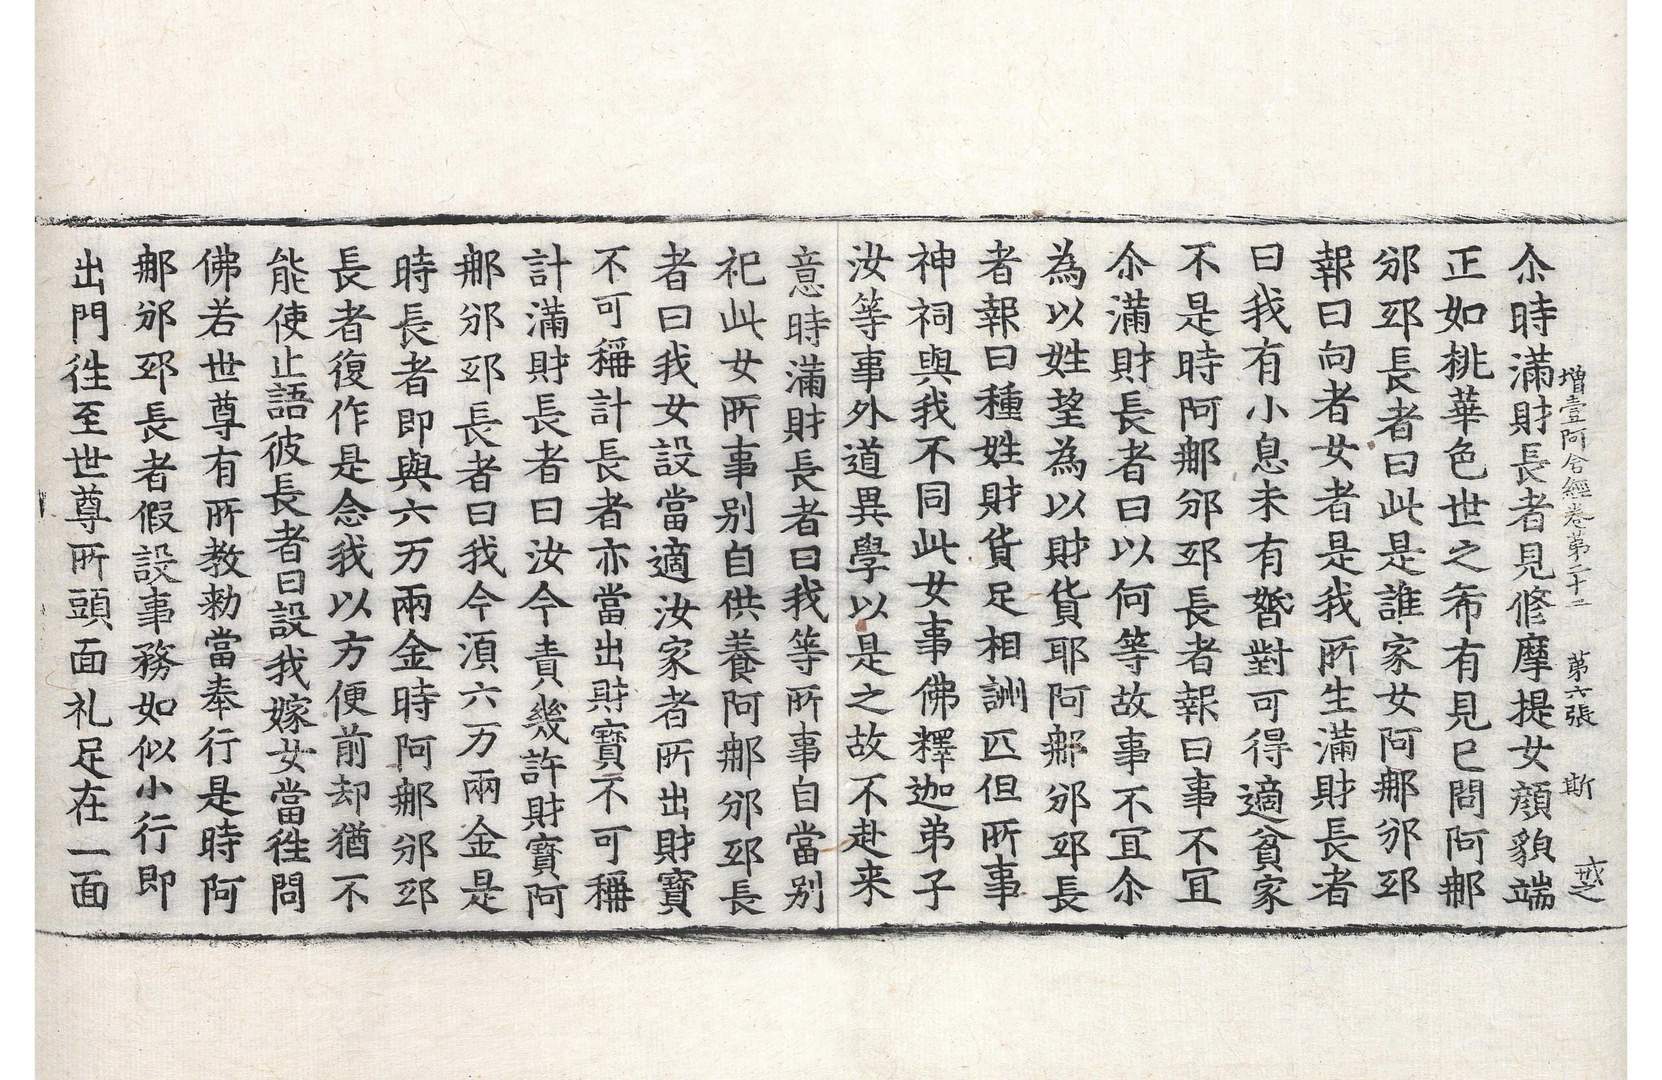 增壹阿含經卷第二十二 第六張 斯
尒時滿財長者見修摩提女顔貌端
正如桃華色世之希有見已問阿𨚗
邠邸長者曰此是誰家女阿𨚗邠邸
報曰向者女者是我所生滿財長者
曰我有小息未有婚對可得適貧家
不是時阿𨚗邠邸長者報曰事不冝
尒滿財長者曰以何等故事不冝尒
為以姓望為以財貨耶阿𨚗邠邸長
者報曰種姓財貨足相詶匹但所事
神祠與我不同此女事佛釋迦弟子
汝等事外道異學以是之故不赴来
意時滿財長者曰我等所事自當別
祀此女所事别自供養阿𨚗邠邸長
者曰我女設當適汝家者所出財寶
不可稱計長者亦當出財寶不可稱
計滿財長者曰汝今責幾許財寶阿
𨚗邠邸長者曰我今湏六万兩金是
時長者即與六万兩金時阿𨚗邠邸
長者復作是念我以方便前却猶不
能使止語彼長者曰設我嫁女當徃問
佛若世尊有所教勑當奉行是時阿
𨚗邠邸長者假設事務如似小行即
出門徃至世尊所頭面礼足在一面